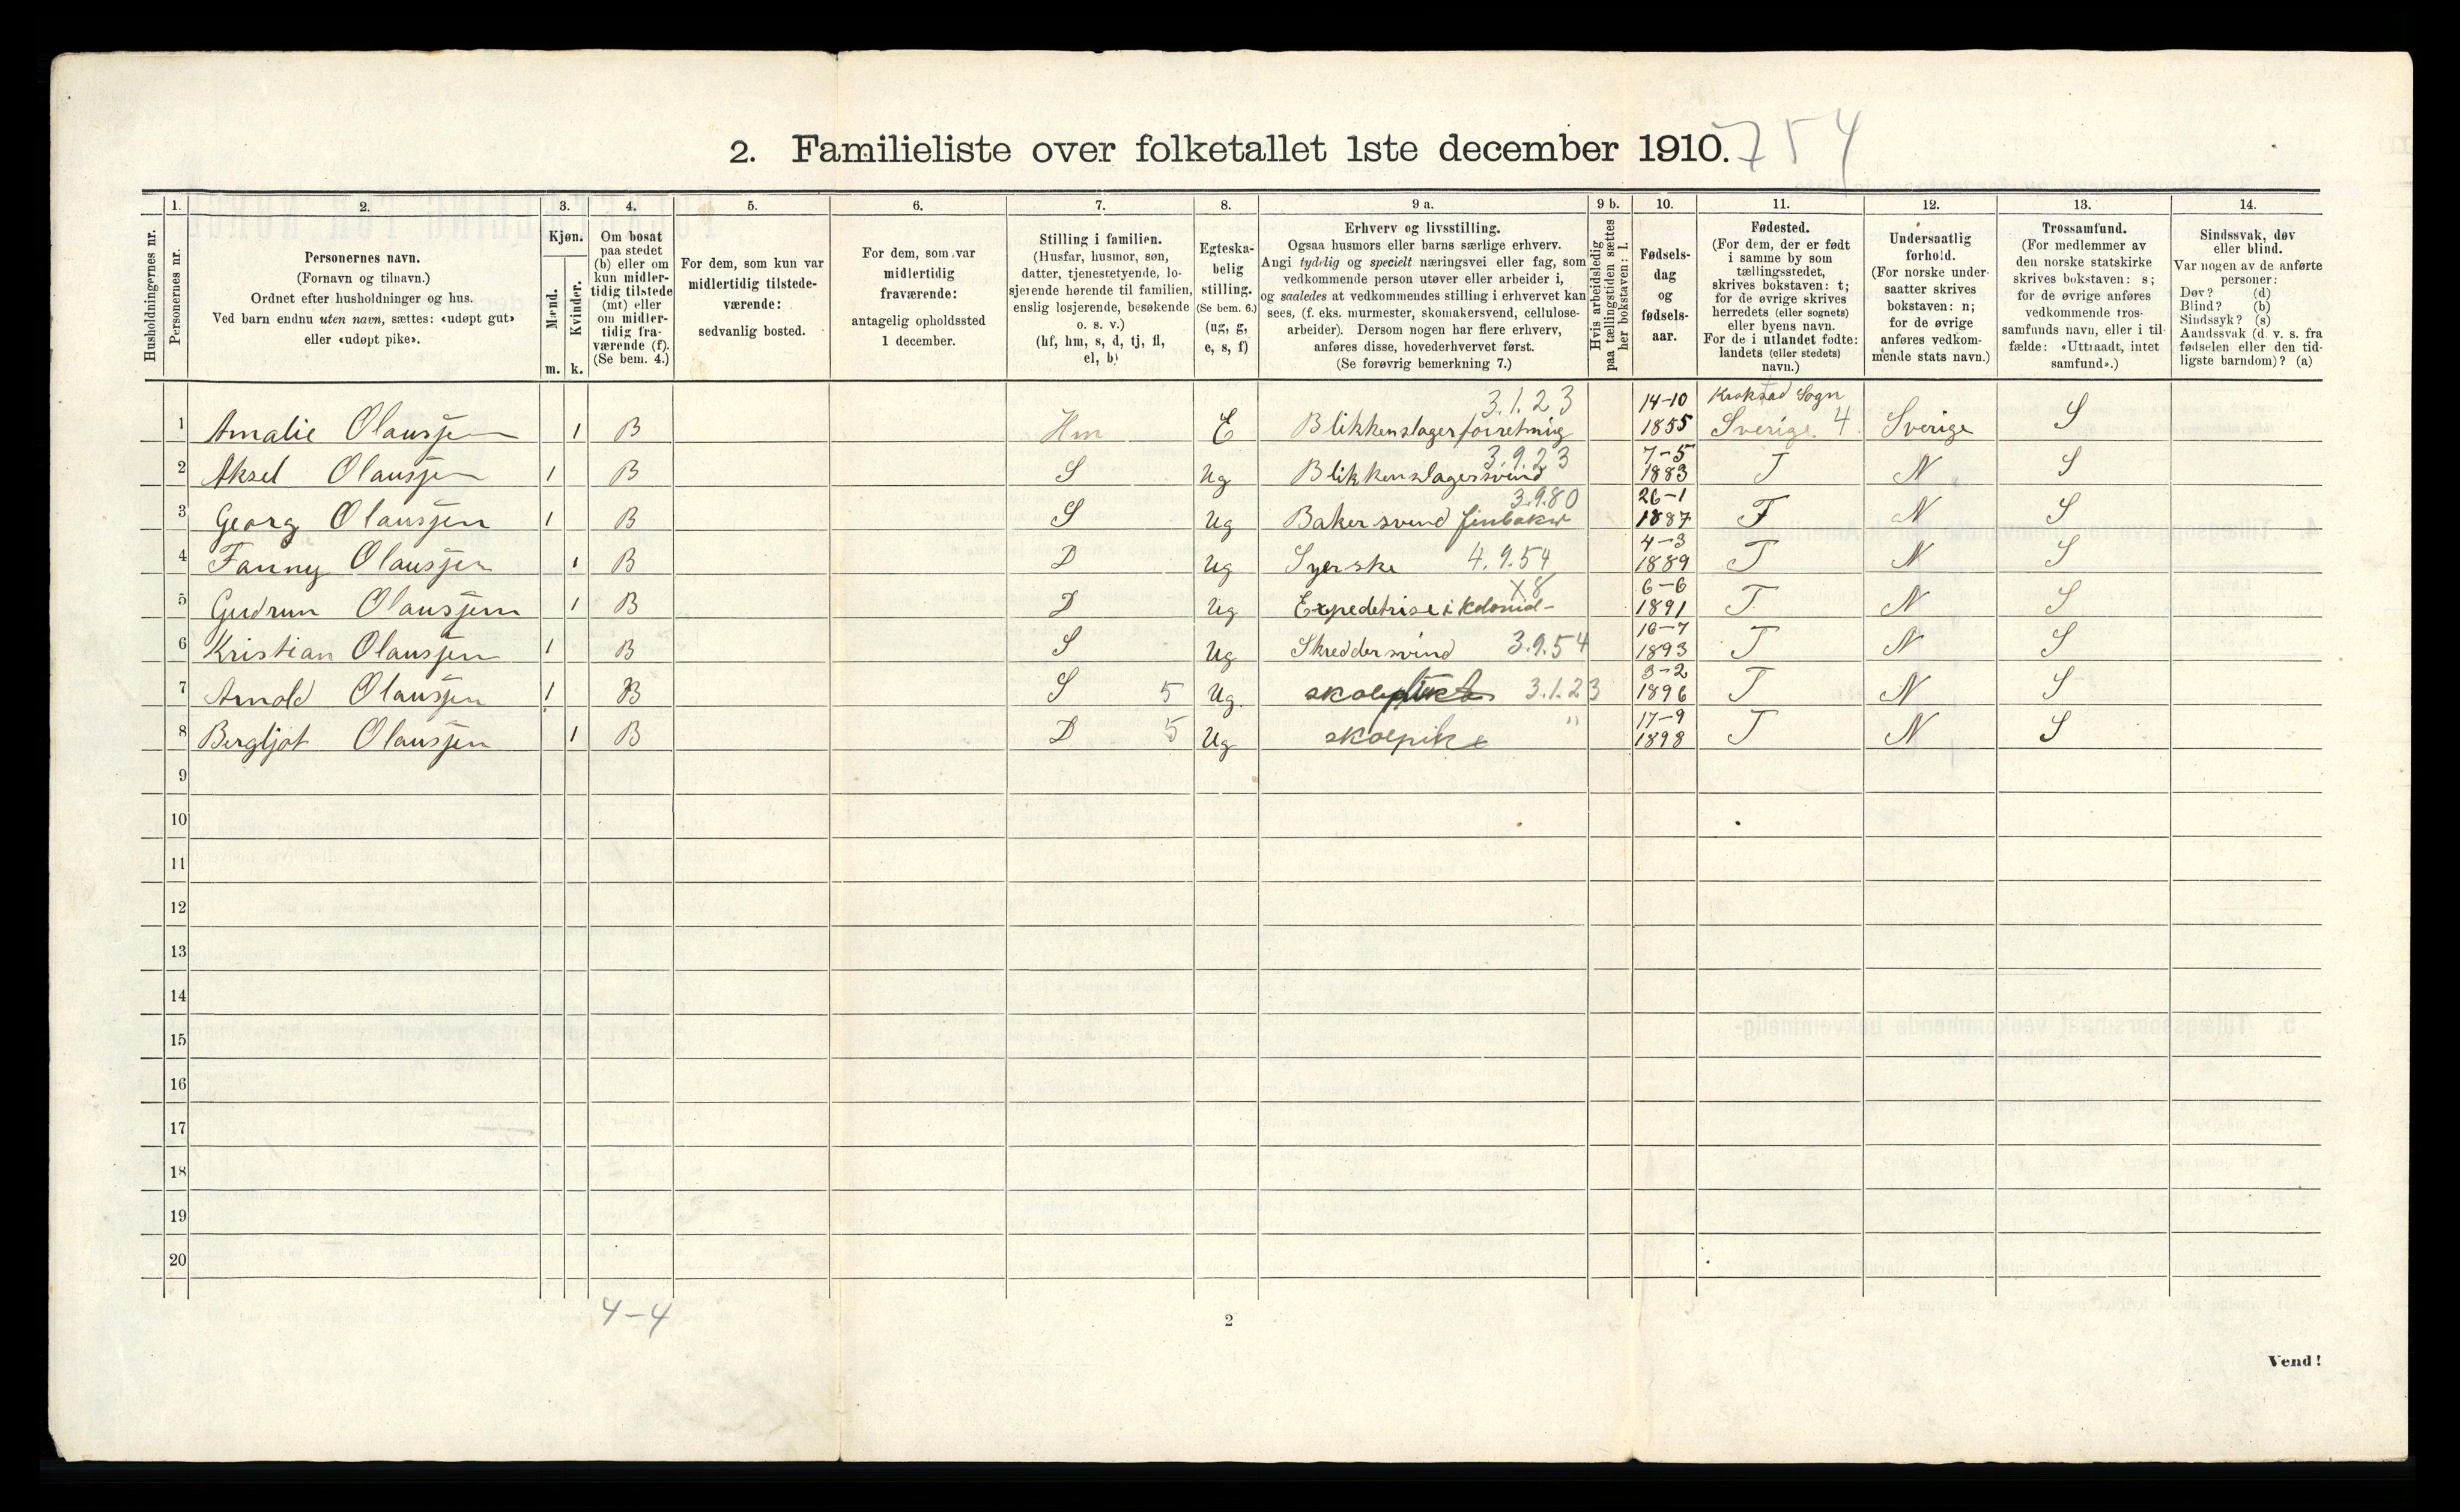 2. Familieliste over folketallet 1ste december 1910. 754
Husholdningernes nr.
1. Personernes nr.
2. Personernes navn. (Fornavn og tilnavn.) Ordnet efter husholdninger og hus. Ved barn endnu uten navn, sættes: «udøpt gut» eller «udøpt pike».
3. Kjøn. Mænd. m. Kvinder. k.
4. Om bosat paa stedet (b) eller om kun midlertidig tilstede (mt) eller om midlertidig fraværende (f). (Se bem. 4.)
5. For dem, som kun var midlertidig tilstedeværende: sedvanlig bosted.
6. For dem, som var midlertidig fraværende: antagelig opholdssted 1 december.
7. Stilling i familien. (Husfar, husmor, søn, datter, tjenestetyende, losjerende hørende til familien, enslig losjerende, besøkende o. s. v.) (hf, hm, s, d, tj, fl, el, b)
8. Egteskabelig stilling. (Se bem. 6.) (ug, g, e, s, f)
9 a. Erhverv og livsstilling. Ogsaa husmors eller barns særlige erhverv. Angi tydelig og specielt næringsvei eller fag, som vedkommende person utøver eller arbeider i, og saaledes at vedkommendes stilling i erhvervet kan sees, (f. eks. murmester, skomakersvend, cellulosearbeider). Dersom nogen har flere erhverv, anføres disse, hovederhvervet først. (Se forøvrig bemerkning 7.)
9 b. Hvis arbeidsledig paa tællingstiden sættes her bokstaven: l.
10. Fødselsdag og fødselsaar.
11. Fødested. (For dem, der er født i samme by som tællingsstedet, skrives bokstaven: t; for de øvrige skrives herredets (eller sognets) eller byens navn. For de i utlandet fødte: landets (eller stedets) navn.)
12. Undersaatlig forhold. (For norske undersaatter skrives bokstaven: n; for de øvrige anføres vedkommende stats navn.)
13. Trossamfund. (For medlemmer av den norske statskirke skrives bokstaven: s; for de øvrige anføres vedkommende trossamfunds navn, eller i tilfælde: «Uttraadt, intet samfund».)
14. Sindssvak, døv eller blind. Var nogen av de anførte personer: Døv? (d) Blind? (b) Sindssyk? (s) Aandssvak (d. v. s. fra fødselen eller den tidligste barndom)? (a)
1 Amalie Olaussen 1 B Hm E Blikkenslagerforretning 3.1.23 14-10 1855 Krokstad Sogn Sverige 4 Sverige S
2 Aksel Olaussen 1 B S Ug Blikkenslagersvend 3.9.23 7-5 1883 T N S
3 Georg Olaussen 1 B S Ug Bakersvend finbaker 3.9.80 26-1 1887 T N S
4 Fanny Olaussen 1 B D Ug Syerske 4.9.54 4-3 1889 T N S
5 Gudrun Olaussen 1 B D Ug Expedetrise i Kolonial- X8 6-6 1891 T N S
6 Kristian Olaussen 1 B S Ug Skreddersvend 3.9.54 16-7 1893 T N S
7 Arnold Olaussen 1 B S 5 Ug. 3.1.23 3-2 1896 T N S
8 Bergljot Olaussen 1 B D 5 Ug skolepike " 17-9 1898 T N S
9
10
11
12
13
14
15
16
17
18
19
20
4-4
2
Vend!